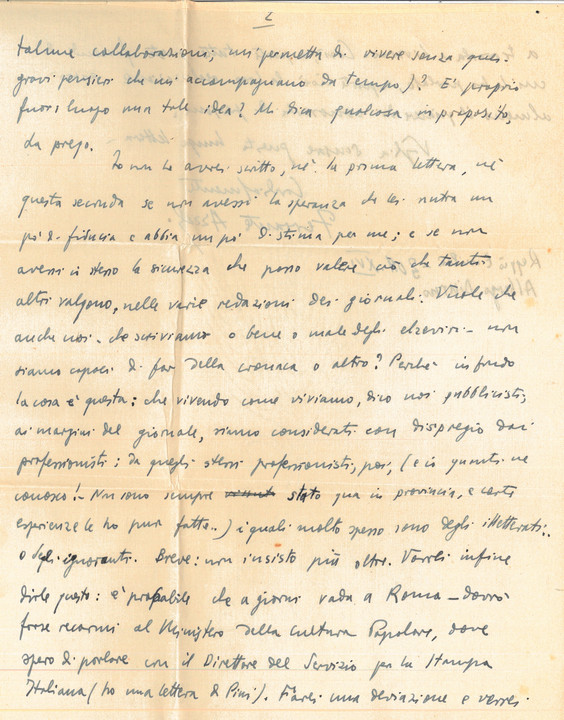 2
talune collaborazioni; mi permetta di vivere senza quei
gravi pensieri che mi accompagnano da tempo)? E' proprio
fuori luogo una tale idea? Mi dica qualcosa, in proposito,
da prego.
Io non le avrei scritto, nè la prima lettera, nè
questa seconda se non avessi la speranza che Lei nutra un
pò di fiducia e abbia un po' di stima per me; e se non
avessi io stesso la sicurezza che posso valere ciò che tanti
altri valgono, nelle varie redazioni dei giornali. Vuole che
anche noi - che scriviamo o bene o male degli elzeviri - non
siamo capaci di far della cronaca o altro? Perchè in fondo
la cosa è questa: che vivendo come viviamo, dico noi pubblicisti,
ai margini del giornale, siamo considerati con dispregio dai
professionisti; da quegli stessi professionisti, poi, (e io quanti ne
conosco! - Non sono sempre stato qua in provincia, e certe
esperienze le ho pur fatte..) i quali molto spesso sono degli illetterati..
o degli ignoranti. Breve: non insisto più oltre. Vorrei infine
dirle questo: è probabile che a giorni vada a Roma - dovrò
forse recarmi al Ministero della Cultura Popolare, dove
spero di parlare con il Direttore del Servizio per la Stampa
Italiana (ho una lettera di Pini). Farei una deviazione e verrei